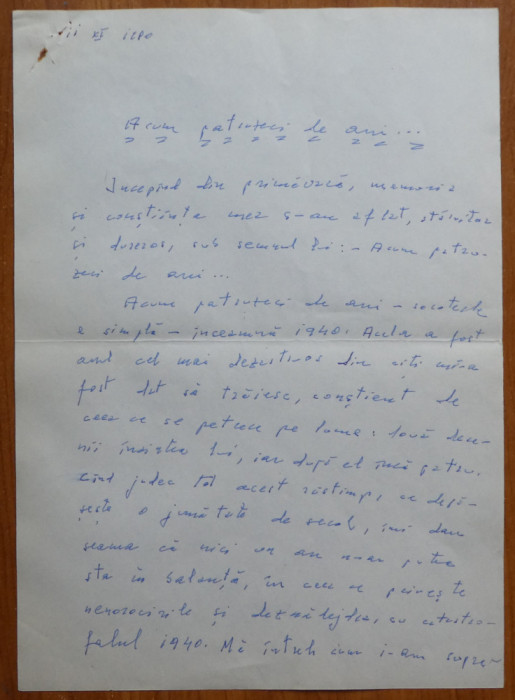 VII XI 1980
Acum patruzeci de ani...
Începînd din primăvară, memoria
și conștiința mea s-au aflat, stăruitor
și dureros, sub semnul lui: - Acum patru-
zeci de ani...
Acum patruzeci de ani - socoteala
e simplă - înseamnă 1940. Acela a fost
anul cel mai dezastruos din cîți mi-a
fost dat să trăiesc, conștient de
ceea ce se petrece pe lume: două dece-
nii înaintea lui, iar după el încă patru.
Cînd judec tot acest răstimp, ce depă-
șește o jumătate de secol, îmi dau
seama că nici un an n-ar putea
sta în balanță, în ceea ce privește
nenorocirile și deznădejdea, cu catastro-
falul 1940. Mă întreb cum i-am supra-